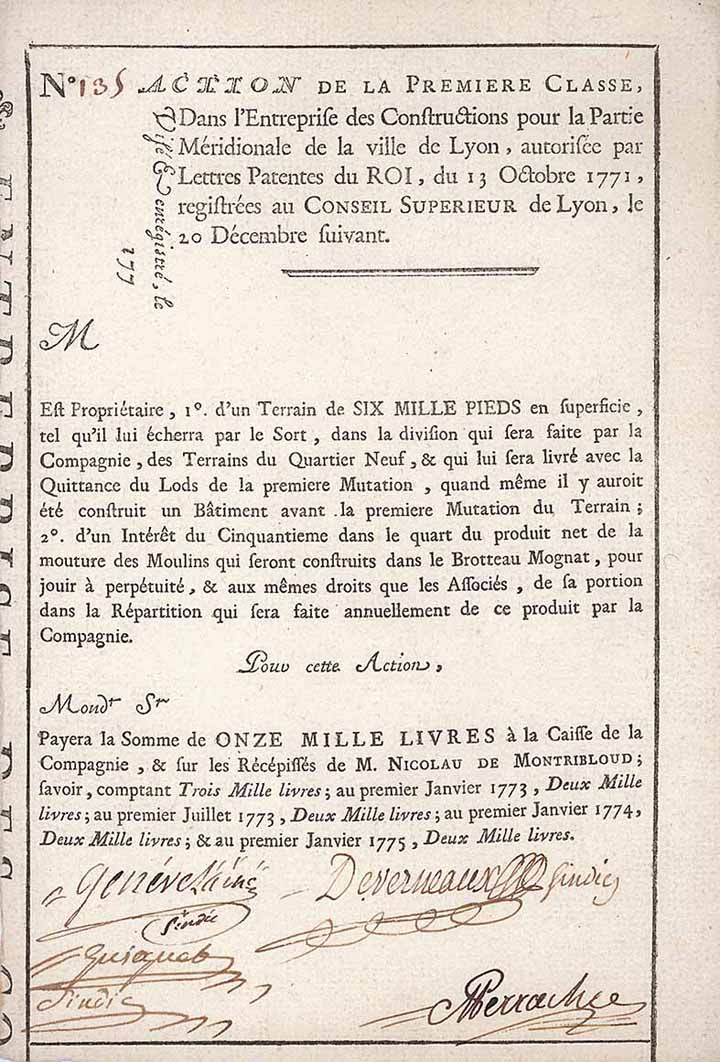 N° 135 ACTION DE LA PREMIERE CLASSE,
Dans l'Entreprise des Constructions pour la Partie
Méridionale de la ville de Lyon, autorisée par
Lettres Patentes du ROI, du 13 Octobre 1771,
registrées au CONSEIL SUPERIEUR de Lyon, le
20 Décembre suivant.
Visé & enrégistré, le
177
M
Est Propriétaire, 1°. d'un Terrain de SIX MILLE PIEDS en superficie,
tel qu'il lui écherra par le Sort, dans la division qui sera faite par la
Compagnie, des Terrains du Quartier Neuf, & qui lui sera livré avec la
Quittance du Lods de la premiere Mutation, quand même il y auroit
été construit un Bâtiment avant la premiere Mutation du Terrain;
2°. d'un Intérêt du Cinquantieme dans le quart du produit net de la
mouture des Moulins qui seront construits dans le Brotteau Mognat, pour
jouir à perpétuité, & aux mêmes droits que les Associés, de sa portion
dans la Répartition qui sera faite annuellement de ce produit par la
Compagnie.
Pour cette Action,
Mondt Sr
Payera la Somme de ONZE MILLE LIVRES à la Caisse de la
Compagnie, & sur les Récépissés de M. NICOLAU DE MONTRIBLOUD;
savoir, comptant Trois Mille livres; au premier Janvier 1773, Deux Mille
livres; au premier Juillet 1773, Deux Mille livres; au premier Janvier 1774,
Deux Mille livres; & au premier Janvier 1775, Deux Mille livres.
Genéve l'ainé Deverneaux sindic
sindic
Guiquet
Sindic
Perrache